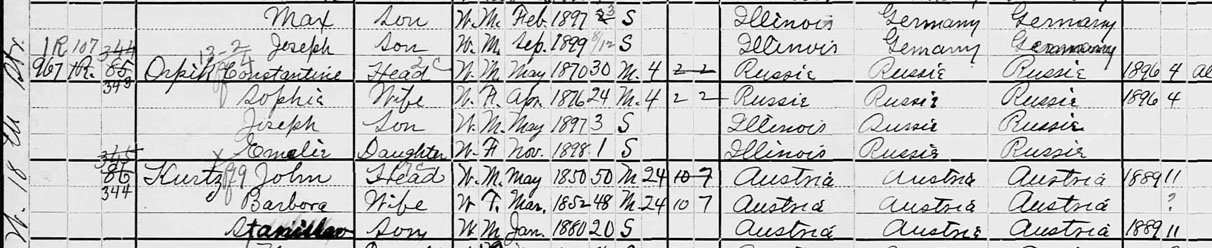 Max Son W. M. Feb. 1897 S Illinois Germany Germany
1R 107 344 Joseph Son W. M. Sep. 1899 8/12 S Illinois Germany Germany
967 85 Constantine Head W. M. May 1870 30 M. 4 2 2 Russie Russie Russie 1896 4 al
343 Sophie Wife W. F. Apr. 1876 24 M. 4 2 2 Russie Russie Russie 1896 4
Joseph Son W. M. May 1897 3 S Illinois Russie Russie
345 Emelie Daughter W. F. Nov. 1898 1 S Illinois Russie Russie
86 Kurtz John Head W. M. May 1850 50 M 24 10 7 Austria Austria Austria 1889 11
344 Barbora Wife W. F. Mar. 1852 48 M 24 10 7 Austria Austria Austria ?
Stanislav Son W. M. Jan. 1880 20 S Austria Austria Austria 1889 11
W. 18 th Str